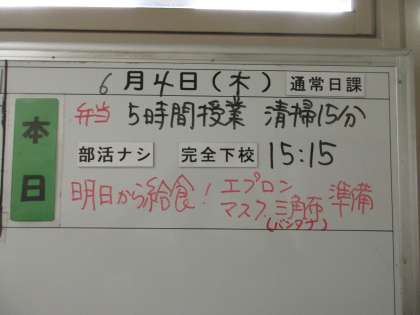 6月4日(木) 通常日課
本日
弁当 5時間授業 清掃15分
部活ナシ 完全下校 15:15
明日から給食! エプロン
マスク、三角布 準備
(バンダナ)